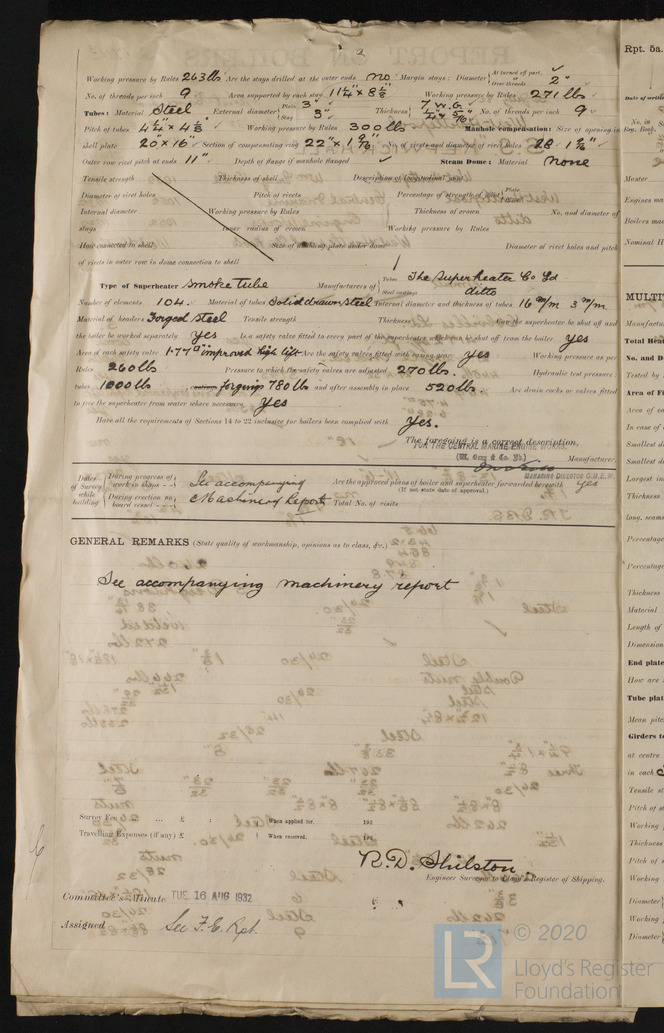 2
Working pressure by Rules 263 lbs Are the stays drilled at the outer ends no Margin stays: Diameter { At turned off part, or Over threads 2"
No. of threads per inch 9 Area supported by each stay 11¼" x 8½" Working pressure by Rules 271 lbs
Tubes: Material Steel External diameter { Plain 3" Stay 3" Thickness { 7 W.G. No. of threads per inch 9
Pitch of tubes Working pressure by Rules 300 lbs Manhole compensation: Size of opening in
shell plate 20 x 16 Section of compensating ring No. of rivets and diameter of rivet holes
Outer row rivet pitch at ends 11" Depth of flange if manhole flanged ✓ Steam Dome: Material none
Tensile strength Thickness of shell Description of longitudinal joint
Diameter of rivet holes Pitch of rivets Percentage of strength of joint { Plate
Internal diameter Working pressure by Rules Thickness of crown No. and diameter of
stays Inner radius of crown Working pressure by Rules
How connected to shell Size of doubling plate under dome Diameter of rivet holes and pitch
of rivets in outer row in dome connection to shell
Type of Superheater Smoke tube Manufacturers of { Tubes The Superheater Co Ld
Steel castings ditto
Number of elements 104 Material of tubes Solid drawn steel Internal diameter and thickness of tubes 16 m/m 3 m/m
Material of headers Forged Steel Tensile strength Thickness Can the superheater be shut off and
the boiler be worked separately Yes Is a safety valve fitted to every part of the superheater which can be shut off from the boiler yes
Area of each safety valve 1.77 □" improved high lift Are the safety valves fitted with easing gear Yes Working pressure as per
Rules 260 lbs Pressure to which the safety valves are adjusted 270 lbs. Hydraulic test pressure:
tubes 1000 lbs castings forgings 780 lbs and after assembly in place 520 lbs. Are drain cocks or valves fitted
to free the superheater from water where necessary Yes
Have all the requirements of Sections 14 to 22 inclusive for boilers been complied with Yes.
The foregoing is a correct description,
FOR THE CENTRAL MARINE ENGINE WORKS
(W. Gray & Co. Ld.) Manufacturer.
MANAGING DIRECTOR C.M.E.W.
Dates of Survey while building { During progress of work in shops - - } See accompanying Are the approved plans of boiler and superheater forwarded herewith yes
(If not state date of approval.)
{ During erection on board vessel - - - } Machinery Report Total No. of visits
GENERAL REMARKS (State quality of workmanship, opinions as to class, &c.)
See accompanying machinery report
Survey Fee ... ... £ : : } When applied for, 192
Travelling Expenses (if any) £ : : } When received, 192
R.D. Shilston
Engineer Surveyor to Lloyd's Register of Shipping.
Committee's Minute TUE. 16 AUG 1932
Assigned See F.E. Rpt.
Rpt. 5a.
Date of writing
No. in
Reg. Book.
Master
Engines ma
Boilers ma
Nominal H
MULTI
Manufactu
Total Hea
No. and D
Tested by
Area of Fi
Area of ea
In case of
Smallest d
Smallest d
Largest in
Thickness
long. seams
Percentage
Percentage
Thickness
Material
Length of
Dimension
End plate
How are
Tube plat
Mean pitc
Girders to
at centre
in each
Tensile st
Pitch of st
Working
Thickness
Pitch of
Working
Diameter
Working
Diameter
LR © 2020
Lloyd's Register
Foundation